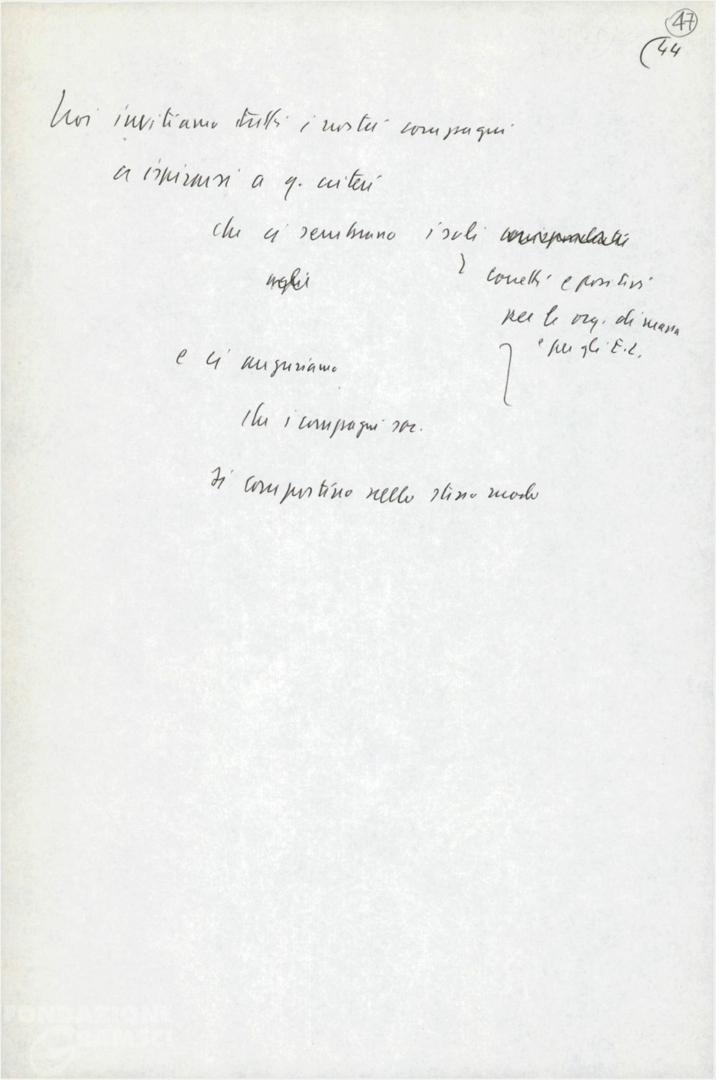 47
(44
Noi invitiamo tutti i nostri compagni
a ispirarsi a q. criteri
che ci sembrano i soli corrispondenti
agli
corretti e positivi
per le org. di massa
e per gli E.L.
e ci auguriamo
che i compagni soc.
si comportino nello stesso modo
FONDAZIONE
GRAMSCI